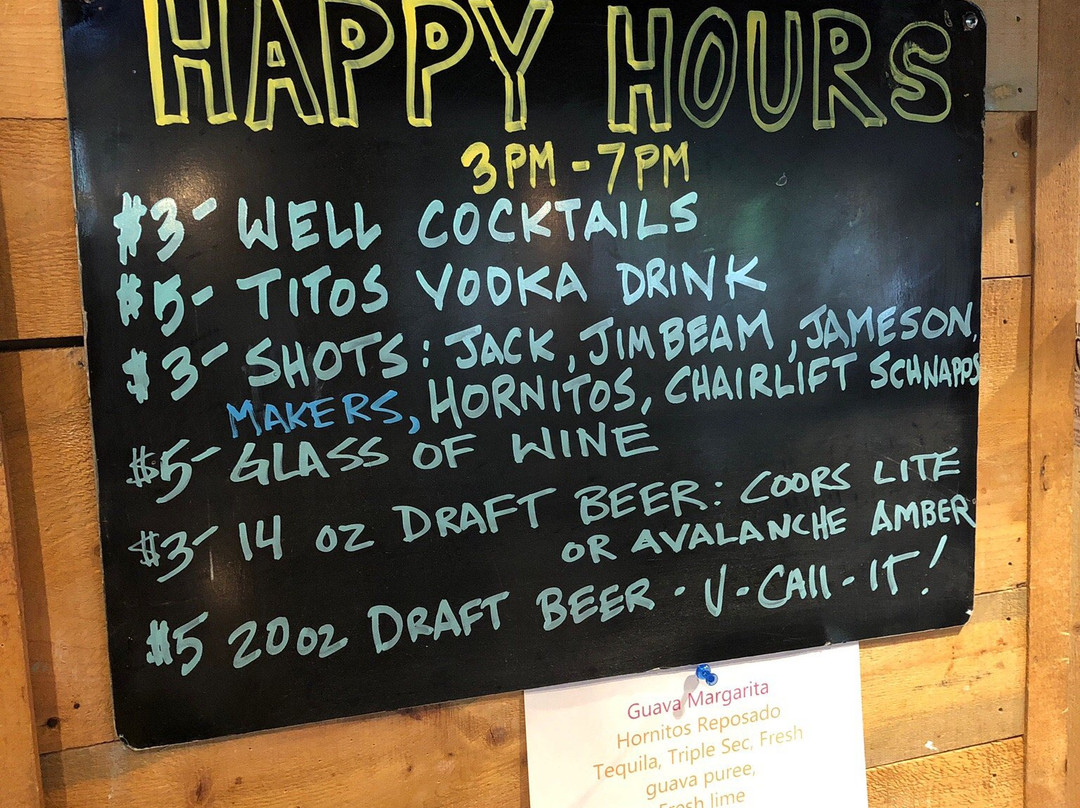 HAPPY HOURS
3PM - 7PM
$3- WELL COCKTAILS
$5- TITOS VODKA DRINK
$3- SHOTS: JACK, JIM BEAM, JAMESON,
MAKERS, HORNITOS, CHAIRLIFT SCHNAPPS
$5- GLASS OF WINE
$3- 14 OZ DRAFT BEER: COORS LITE
OR AVALANCHE AMBER
$5 20oz DRAFT BEER - U-CAll-IT!
Guava Margarita
Hornitos Reposado
Tequila, Triple Sec, Fresh
guava puree,
Fresh lime